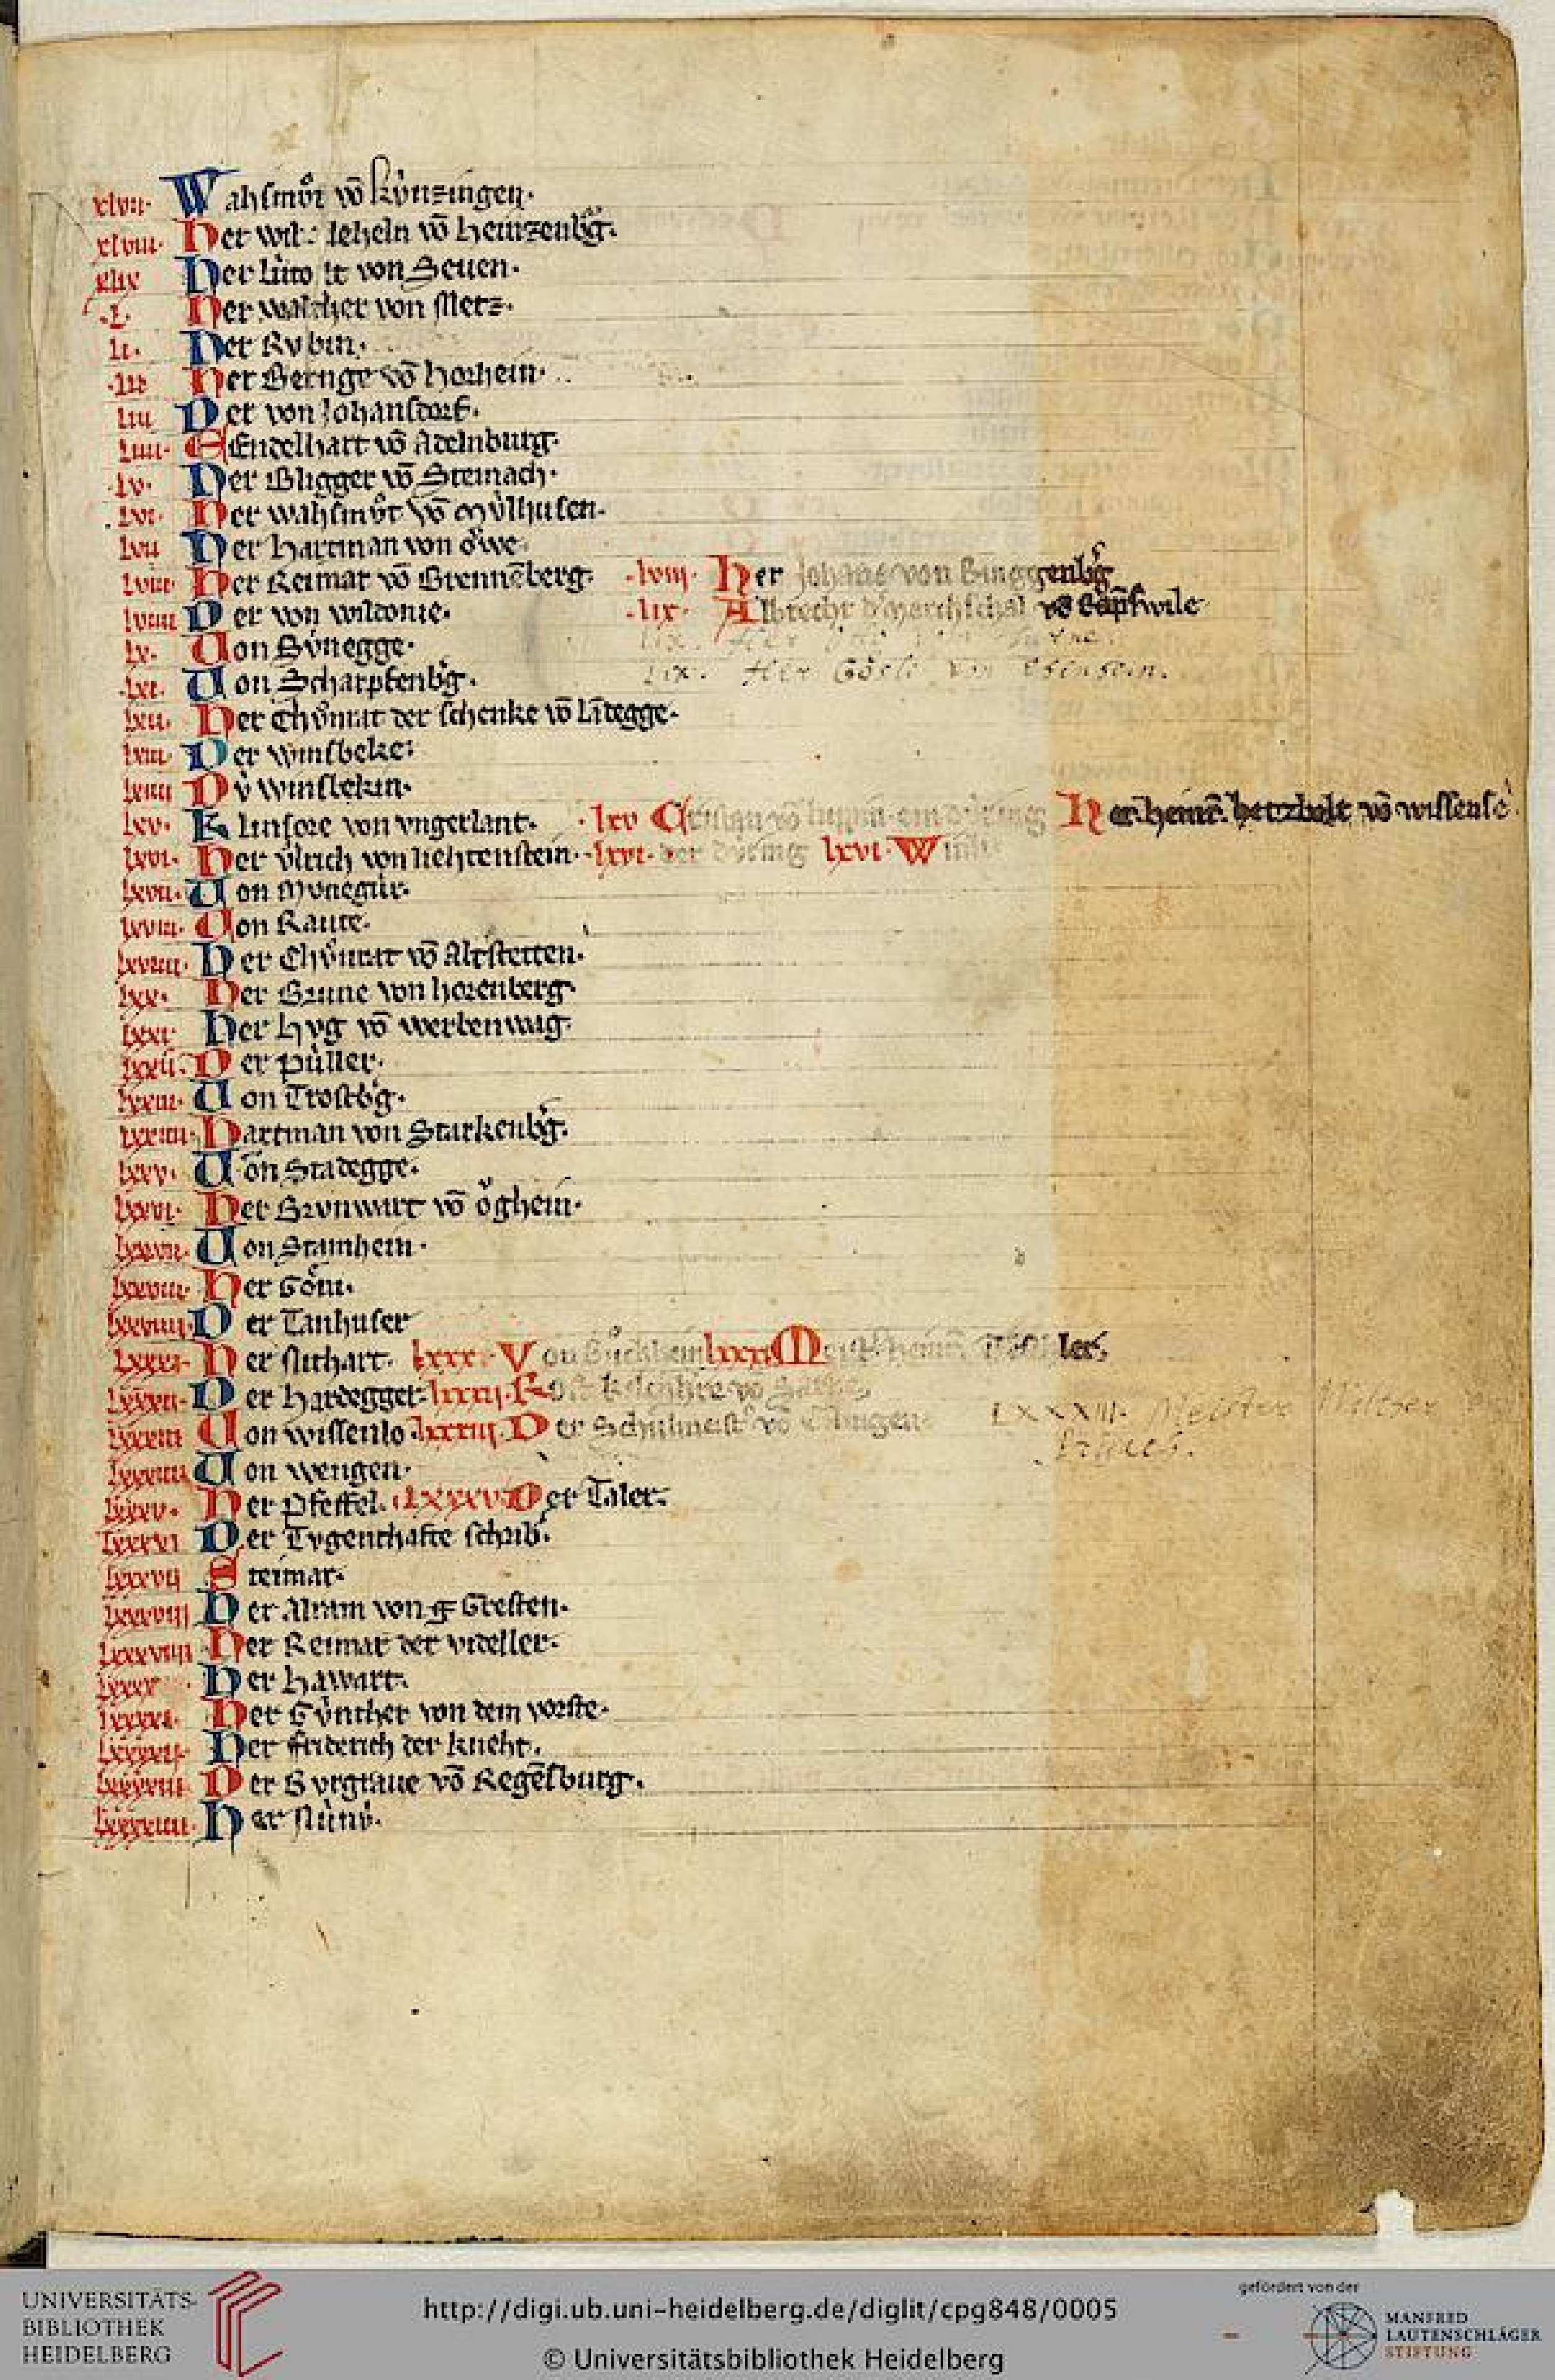 xlvii· Wahsmůt vō kv̍nzingen·
xlviii· Her wil· vō heinzenbg·
xlix Her lůto lt von Seuen·
·L· Her walther von Metz·
Li· Her Rvbin·
·Lii Her Bernge vō horhein·
Liii Der von Johansdorf·
Liiii· Endelhart vō Adelnburg·
·lv· Her Bligger vō Steinach·
·Lvi· Her wahsmůt vō mv̍lhusen·
lvii Her hartman von ǒwe·
lviii· Her Reimar vō Brennēberg· ·lviii· Her Johans von Ringgenbg
lviiii Der von wildonie· ·lix· Albrecht marchschal vō Raprswile
lx· Uon Sv̍negge· lix. Her
·lxi· Uon Scharpfenbg· Lix. Her Gösli von Ehenhein.
lxii· Her Chůnrat der schenke vō Lādegge·
lxiii· Der winsbeke:
lxiiii Dv̍ winsbekin·
lxv· Klinsore von vngerlant· ·lxv Cristan vō luppin ein dv̍ring Her heinr̄· hetzbolt vō wissense
lxvi· Her v̊lrich von liehtenstein· ·lxvi· der dv̍ring lxvi· Winli
lxvii· Uon Mvnegiur·
lxviii· Uon Raute·
lxviiii· Her Chůnrat vō Altstetten·
lxx· Her Brune von hornberg·
lxxi· Her Hvg vō werbenwag·
lxxii· Der pu̍ller·
lxxiii· Uon Trostbg·
lxxiiii· Hartman von Starkenbg·
lxxv· Uon Stadegge·
lxxvi· Her Brvnwart vō ǒghein·
lxxvii· Uon Stamhein·
lxxviii· Her Gǒli·
lxxviiii· Der Tanhuser
lxxxi· Her Nithart· lxxx· Von Bůchhein lxxxi Meist heinr̄ Teschlers
lxxxii· Der hardegger· lxxxii· Rost kilchhre vō Sarne
lxxxiii Uon wissenlo· lxxxiii· Der Schůlmeist vō Eslingen LXXXIII· Meister Walther von
Prisach.
lxxxiiii Uon wengen·
lxxxv· Her Pfeffel· LXXXV Der Taler·
lxxxvi Der Tvgenthafte schrib·
lxxxvii Steimar·
lxxxviii Her Alram von g Gresten·
lxxxviiii Her Reimar der videller·
lxxxx· Her hawart·
lxxxxi· Her Gv̍nther von dem vorste·
lxxxxii· Her friderich der kneht·
lxxxxiii Der Burgraue vō Regēsburg·
lxxxxiiii· Her Niuniv·
UNIVERSITÄTS-
BIBLIOTHEK
HEIDELBERG
http://digi.ub.uni-heidelberg.de/diglit/cpg848/0005
© Universitätsbibliothek Heidelberg
gefördert von der
MANFRED
LAUTENSCHLÄGER
STIFTUNG